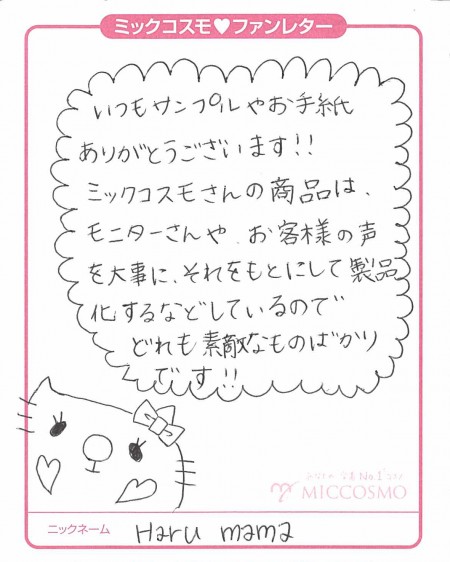 ミックコスモ♥ファンレター
いつもサンプルやお手紙
ありがとうございます!!
ミックコスモさんの商品は、
モニターさんや、お客様の声
を大事に、それをもとにして製品
化するなどしているので
どれも素敵なものばかり
です!!
MICCOSMO
ニックネーム Haru mama